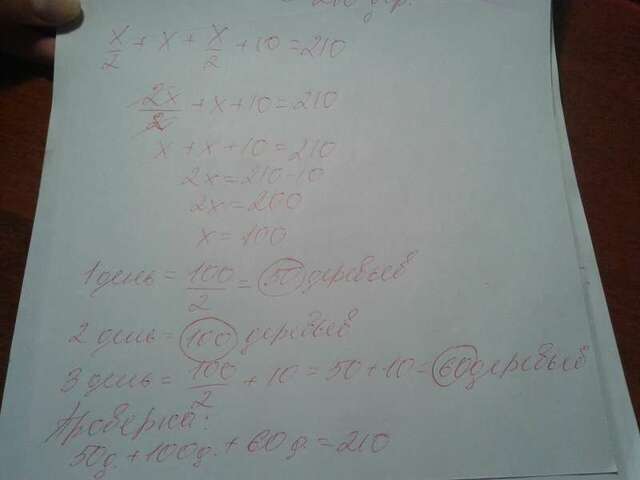 = 210 дер.
x/2 + x + x/2 + 10 = 210
2x/2 + x + 10 = 210
x + x + 10 = 210
2x = 210 - 10
2x = 200
x = 100
1 день = 100/2 = 50 деревьев
2 день = 100 деревьев
3 день = 100/2 + 10 = 50 + 10 = 60 деревьев
Проверка:
50д. + 100д. + 60д. = 210